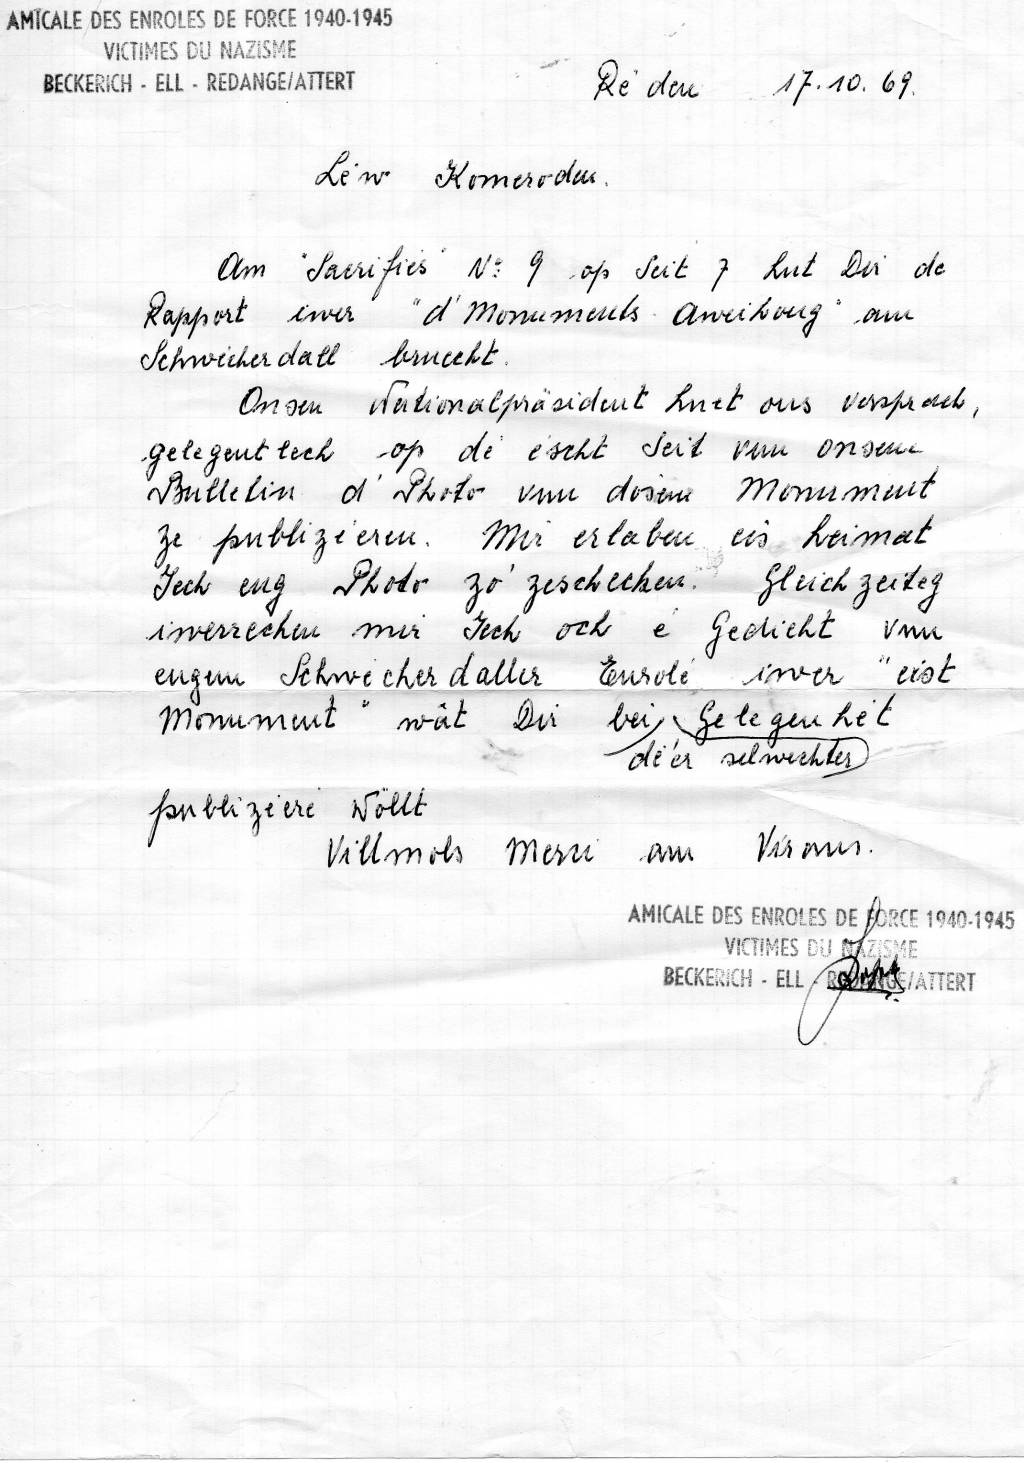 AMICALE DES ENROLES DE FORCE 1940-1945
VICTIMES DU NAZISME
BECKERICH - ELL - REDANGE/ATTERT
Ré den 17.10.69.
Léw Komeroden.
Am "Sacrifiés" No 9 op Seit 7 hut Dir de
Rapport iwer "d'Monuments Aweihong" am
Schwicherdall bruecht.
Onsen Nationalpräsident huet ons versprach,
gelegentlech op dé éscht Seit vun onsem
Bulletin d'Photo vun dosem Monument
ze publizéeren. Mir erlaben eis heimat
Iech eng Photo zó zeschecken. Gleichzeiteg
iwerrechen mir Iech och é Gedicht vun
engem Schwécherdaller Enrolé iwer "eist
Monument" wât Dir bei Gelegenhét
dé'er selwechter
publizéeré wöllt
Villmols Merci am Viraus.
AMICALE DES ENROLES DE FORCE 1940-1945
VICTIMES DU NAZISME
BECKERICH - ELL - REDANGE/ATTERT